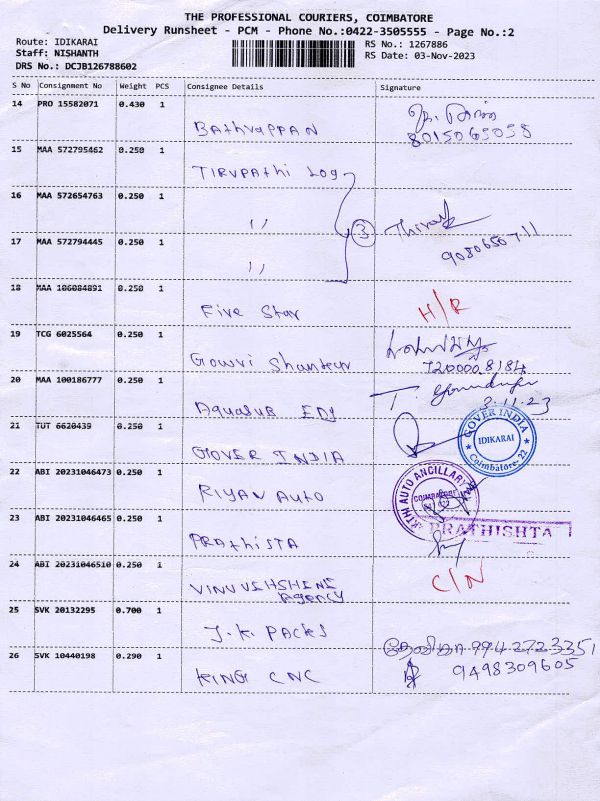 THE PROFESSIONAL COURIERS, COIMBATORE
Delivery Runsheet - PCM - Phone No.:0422-3505555 - Page No.:2
Route: IDIKARAI RS No.: 1267886
Staff: NISHANTH RS Date: 03-Nov-2023
DRS No.: DCJB126788602
S No Consignment No Weight PCS Consignee Details Signature
14 PRO 15582071 0.430 1
Bathrappan 8015065055
15 MAA 572795462 0.250 1
TIRUPAthi Log
16 MAA 572654763 0.250 1
,, 3
17 MAA 572794445 0.250 1
,, 9080650711
18 MAA 106084891 0.250 1
Five Star H/R
19 TCG 6025564 0.250 1
Gowri Shankar 720000.8184
20 MAA 100186777 0.250 1
Aquasub EDI 3.11.23
21 TUT 6620439 0.250 1
GLOVER INDIA
GLOVER INDIA
IDIKARAI
Coimbatore-22
22 ABI 20231046473 0.250 1
RIYAN AUTO
AUTO ANCILLARY
COIMBATORE
23 ABI 20231046465 0.250 1
PRAthISTA
PRATHISHTA
24 ABI 20231046510 0.250 1
Agency C/N
25 SVK 20132295 0.700 1
J.K. PACKS
26 SVK 10440198 0.290 1
9942723351
KING CNC 9498309605